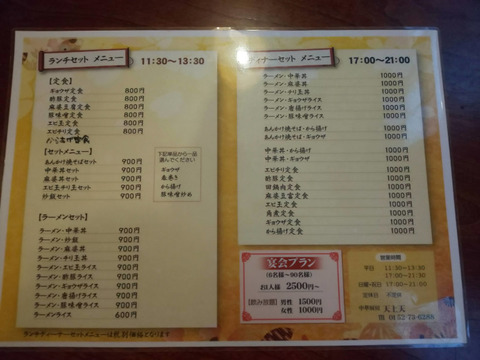 ランチセット メニュー 11:30〜13:30
【定食】
ギョウザ定食 800円
酢豚定食 800円
麻婆豆腐定食 800円
豚味噌定食 800円
エビ玉定食 800円
エビチリ定食 800円
からあげ定食
【セットメニュー】
下記単品から一品
選んでください
あんかけ焼そばセット 900円
中華丼セット 900円
麻婆丼セット 900円
エビ玉チリ玉セット 900円
炒飯セット 900円
ギョウザ
春巻き
から揚げ
豚味噌炒め
【ラーメンセット】
ラーメン・中華丼 900円
ラーメン・炒飯 900円
ラーメン・麻婆丼 900円
ラーメン・チリ玉丼 900円
ラーメン・エビ玉ライス 900円
ラーメン・ギョウザライス 900円
ラーメン・唐揚げライス 900円
ラーメン・豚味噌ライス 900円
ラーメンライス 600円
ランチディーナーセットメニューは税別価格となります
ディナーセット メニュー 17:00〜21:00
ラーメン・中華丼 1000円
ラーメン・麻婆丼 1000円
ラーメン・チリ玉丼 1000円
ラーメン・ギョウザライス 1000円
ラーメン・唐揚げライス 1000円
あんかけ焼そば・から揚げ 1000円
あんかけ焼そば・ギョウザ 1000円
中華丼・から揚げ 1000円
中華丼・ギョウザ 1000円
エビチリ定食 1000円
酢豚定食 1000円
回鍋肉定食 1000円
麻婆豆腐定食 1000円
エビ玉定食 1000円
角煮定食 1000円
ギョウザ定食 1000円
から揚げ定食 1000円
宴会プラン
(6名様〜90名様)
お1人様 2500円〜
【飲み放題】 男性 1500円
女性 1000円
営業時間
平日 11:30〜13:30
17:30〜21:00
日曜・祝日 17:00〜21:00
定休日 不定休
中華飯店 天上天